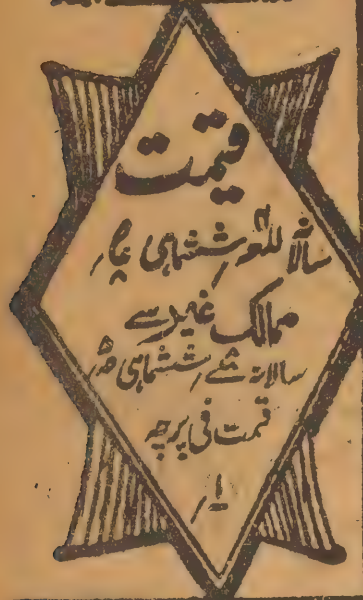 قیمت
سالانہ للعہ ششماہی
ممالک غیر سے
سالانہ ششماہی
قیمت فی پرچہ
۱؍